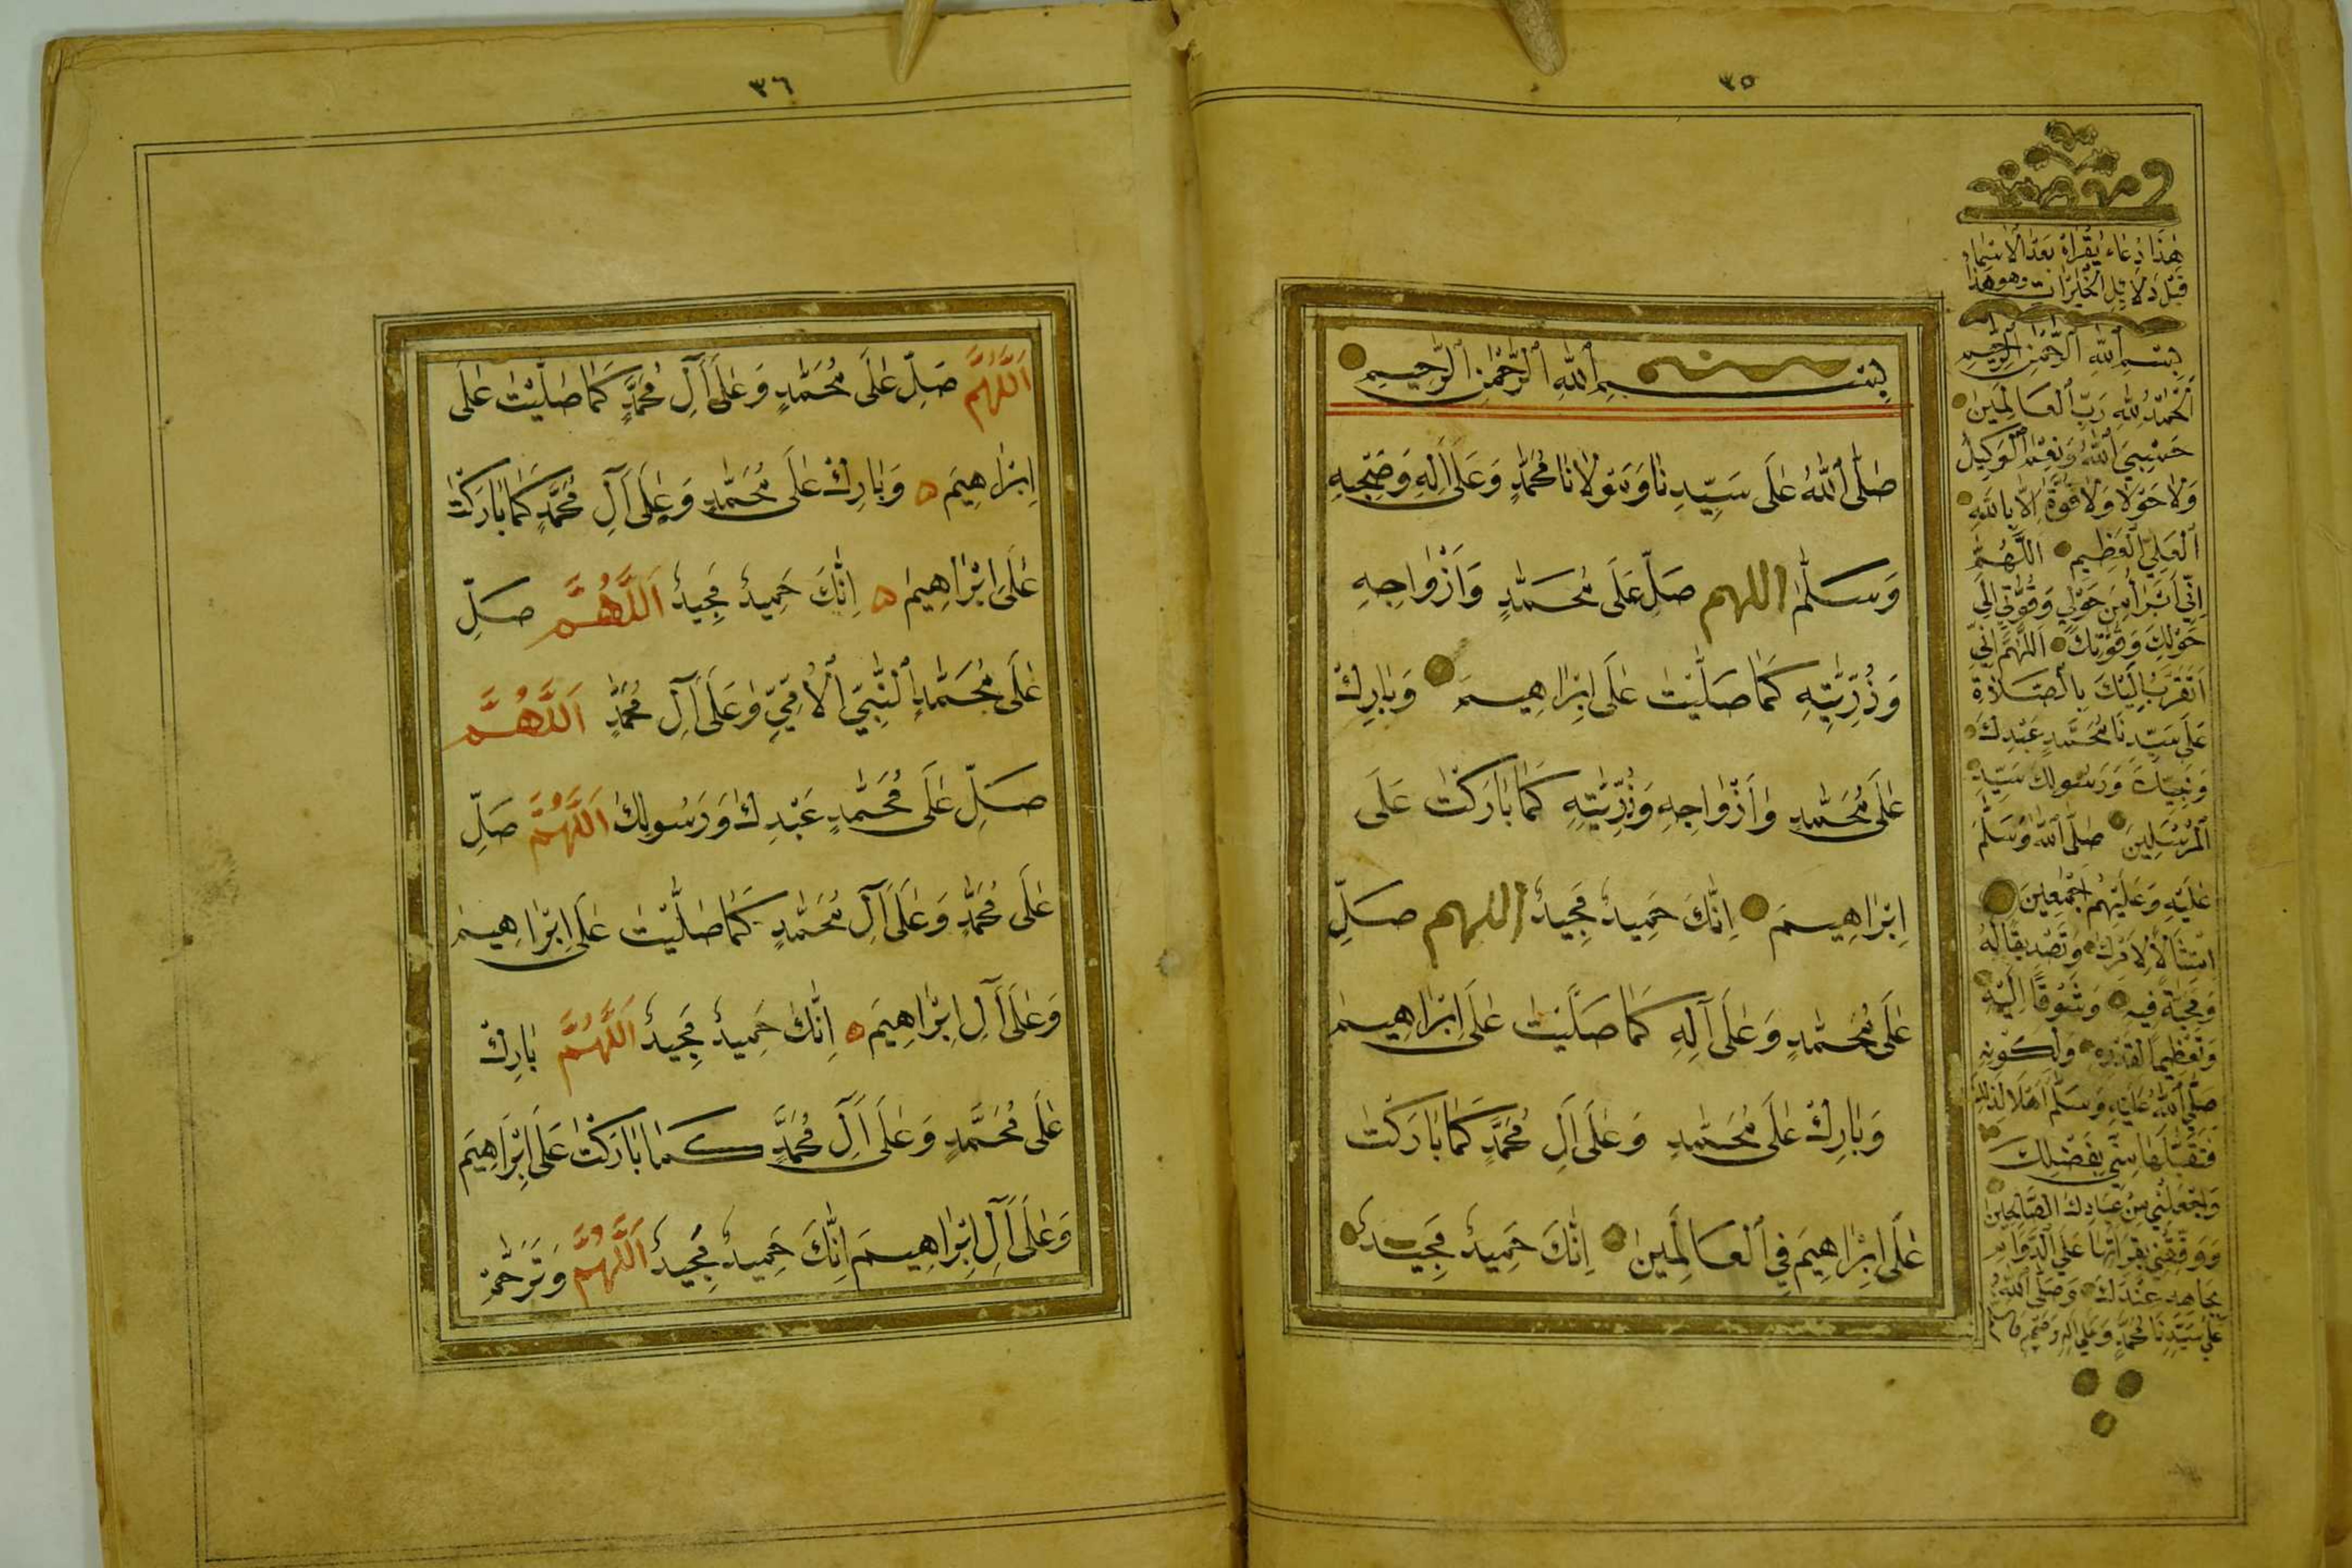 ٣٥
هٰذَا دُعَاء يُقْرَأُ بَعْدَ الْاَسْمَاءِ
قَبْلَ دَلَائِلِ الْخَيْرَاتِ وهو هذا
بِسْمِ اللهِ الرَّحْمٰنِ الرَّحِيمِ
اَلْحَمْدُ لِلّٰهِ رَبِّ الْعَالَمِينَ
حَسْبِيَ اللهُ وَنِعْمَ الْوَكِيلُ
وَلَا حَوْلَ وَلَا قُوَّةَ اِلَّا بِاللهِ
الْعَلِيِّ الْعَظِيمِ اَللّٰهُمَّ
اِنِّي اَبْرَأُ مِنْ حَوْلِي وَقُوَّتِي اِلَى
حَوْلِكَ وَقُوَّتِكَ اَللّٰهُمَّ اِنِّي
اَتَقَرَّبُ اِلَيْكَ بِالصَّلَاةِ
عَلَى سَيِّدِنَا مُحَمَّدٍ عَبْدِكَ
وَنَبِيِّكَ وَرَسُولِكَ سَيِّدِ
الْمُرْسَلِينَ صَلَّى اللهُ وَسَلَّمَ
عَلَيْهِ وَعَلَيْهِمْ اَجْمَعِينَ
اِمْتِثَالًا لِاَمْرِكَ وَتَصْدِيقًا لَهُ
وَمَحَبَّةً فِيهِ وَشَوْقًا اِلَيْهِ
وَتَعْظِيمًا لِقَدْرِهِ وَلِكَوْنِهِ
صَلَّى اللهُ عَلَيْهِ وَسَلَّمَ اَهْلًا لِذٰلِكَ
فَتَقَبَّلْهَا مِنِّي بِفَضْلِكَ
وَاجْعَلْنِي مِنْ عِبَادِكَ الصَّالِحِينَ
وَوَفِّقْنِي بِقِرَاءَتِهَا عَلَى الدَّوَامِ
بِجَاهِهِ عِنْدَكَ وَصَلَّى اللهُ
عَلَى سَيِّدِنَا مُحَمَّدٍ وَعَلَى اٰلِهِ وَصَحْبِهِ وسلم
بِسْمِ اللهِ الرَّحْمٰنِ الرَّحِيمِ
صَلَّى اللهُ عَلَى سَيِّدِنَا وَمَوْلَانَا مُحَمَّدٍ وَعَلَى اٰلِهِ وَصَحْبِهِ
وَسَلَّمَ اللهم صَلِّ عَلَى مُحَمَّدٍ وَاَزْوَاجِهِ
وَذُرِّيَّتِهِ كَمَا صَلَّيْتَ عَلَى اِبْرَاهِيمَ وَبَارِكْ
عَلَى مُحَمَّدٍ وَاَزْوَاجِهِ وَذُرِّيَّتِهِ كَمَا بَارَكْتَ عَلَى
اِبْرَاهِيمَ اِنَّكَ حَمِيدٌ مَجِيدٌ اللهم صَلِّ
عَلَى مُحَمَّدٍ وَعَلَى آلِهِ كَمَا صَلَّيْتَ عَلَى اِبْرَاهِيمَ
وَبَارِكْ عَلَى مُحَمَّدٍ وَعَلَى اٰلِ مُحَمَّدٍ كَمَا بَارَكْتَ
عَلَى اِبْرَاهِيمَ فِي الْعَالَمِينَ اِنَّكَ حَمِيدٌ مَجِيدٌ
٣٦
اَللّٰهُمَّ صَلِّ عَلَى مُحَمَّدٍ وَعَلَى آلِ مُحَمَّدٍ كَمَا صَلَّيْتَ عَلَى
اِبْرَاهِيمَ ۝ وَبَارِكْ عَلَى مُحَمَّدٍ وَعَلَى آلِ مُحَمَّدٍ كَمَا بَارَكْتَ
عَلَى اِبْرَاهِيمَ ۝ اِنَّكَ حَمِيدٌ مَجِيدٌ اَللّٰهُمَّ صَلِّ
عَلَى مُحَمَّدٍ النَّبِيِّ الْاُمِّيِّ وَعَلَى آلِ مُحَمَّدٍ اَللّٰهُمَّ
صَلِّ عَلَى مُحَمَّدٍ عَبْدِكَ وَرَسُولِكَ اَللّٰهُمَّ صَلِّ
عَلَى مُحَمَّدٍ وَعَلَى آلِ مُحَمَّدٍ كَمَا صَلَّيْتَ عَلَى اِبْرَاهِيمَ
وَعَلَى آلِ اِبْرَاهِيمَ ۝ اِنَّكَ حَمِيدٌ مَجِيدٌ اَللّٰهُمَّ بَارِكْ
عَلَى مُحَمَّدٍ وَعَلَى آلِ مُحَمَّدٍ كَمَا بَارَكْتَ عَلَى اِبْرَاهِيمَ
وَعَلَى آلِ اِبْرَاهِيمَ اِنَّكَ حَمِيدٌ مَجِيدٌ اَللّٰهُمَّ وَتَرَحَّمْ